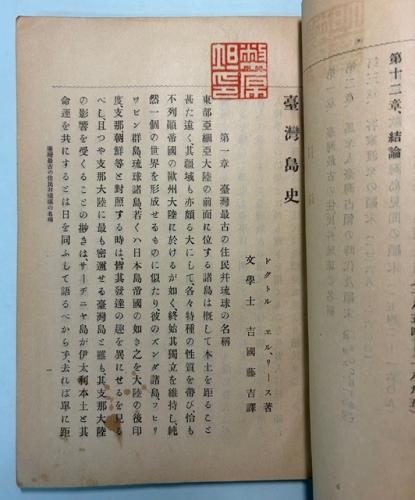 第十二章、結論
臺灣島史
ドクトル エル、リース著
文學士 吉國藤吉譯
第一章 臺灣最古の住民幷琉球の名稱
東部亞細亞大陸の前面に位する諸島は概して本土を距ること
甚だ遠く其疆域も亦頗る大にして、各々特種の性質を帶び恰も
不列顚帝國の歐州大陸に於けるが如く、終始其獨立を維持し、純
然一個の世界を形成せるものに似たり、彼のズンダ諸島、フヒリ
ツピン群島、琉球諸島若くハ日本島帝國の如き之を大陸の後印
度、支那朝鮮等と對照する時は、皆其發達の趣を異にせるを見る
べし、且つや支那大陸に最も密邇せる臺灣島と雖も、其支那大陸
の影響を受くることの尠きは、サーヂニヤ島が伊太利本土と其
命運を共にするとは日を同ふして語るべからず、去れば單に距
臺灣最古の住民幷琉球の名稱
一